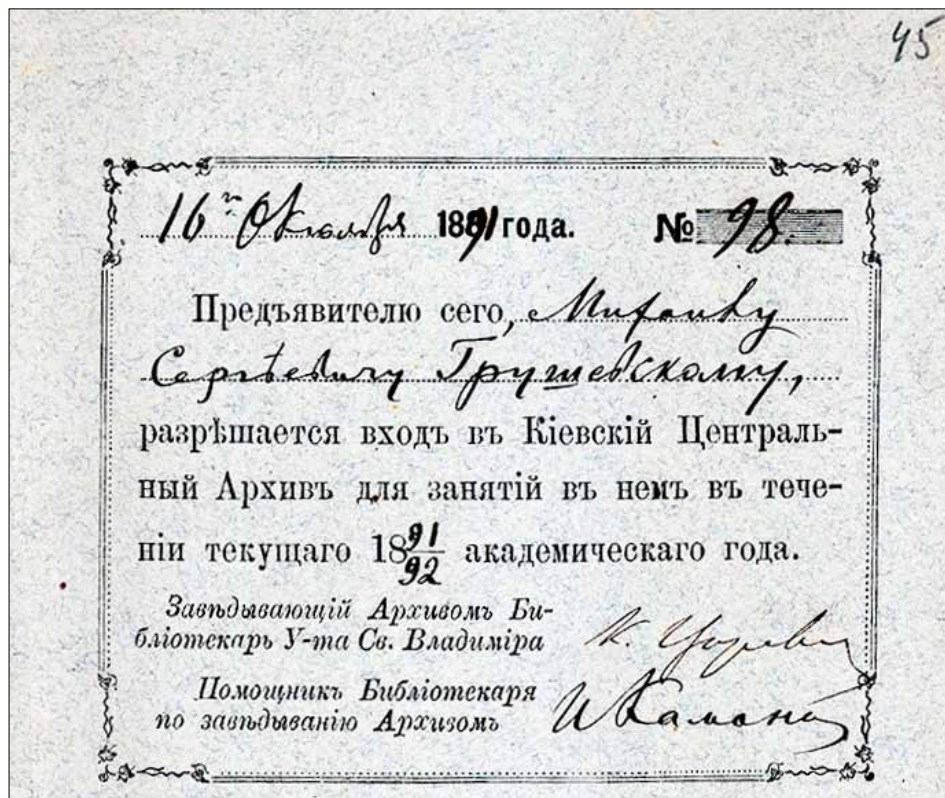 45
16го Октября 1891 года. № 98.
Предъявителю сего, Михаилу
Сергѣевичу Грушевскому,
разрѣшается входъ въ Кіевскій Централь-
ный Архивъ для занятій въ немъ въ тече-
ніи текущаго 1891/92 академическаго года.
Завѣдывающій Архивомъ Би-
бліотекарь У-та Св. Владиміра
Помощникъ Библіотекаря
по завѣдыванію Архивомъ И Каманинъ